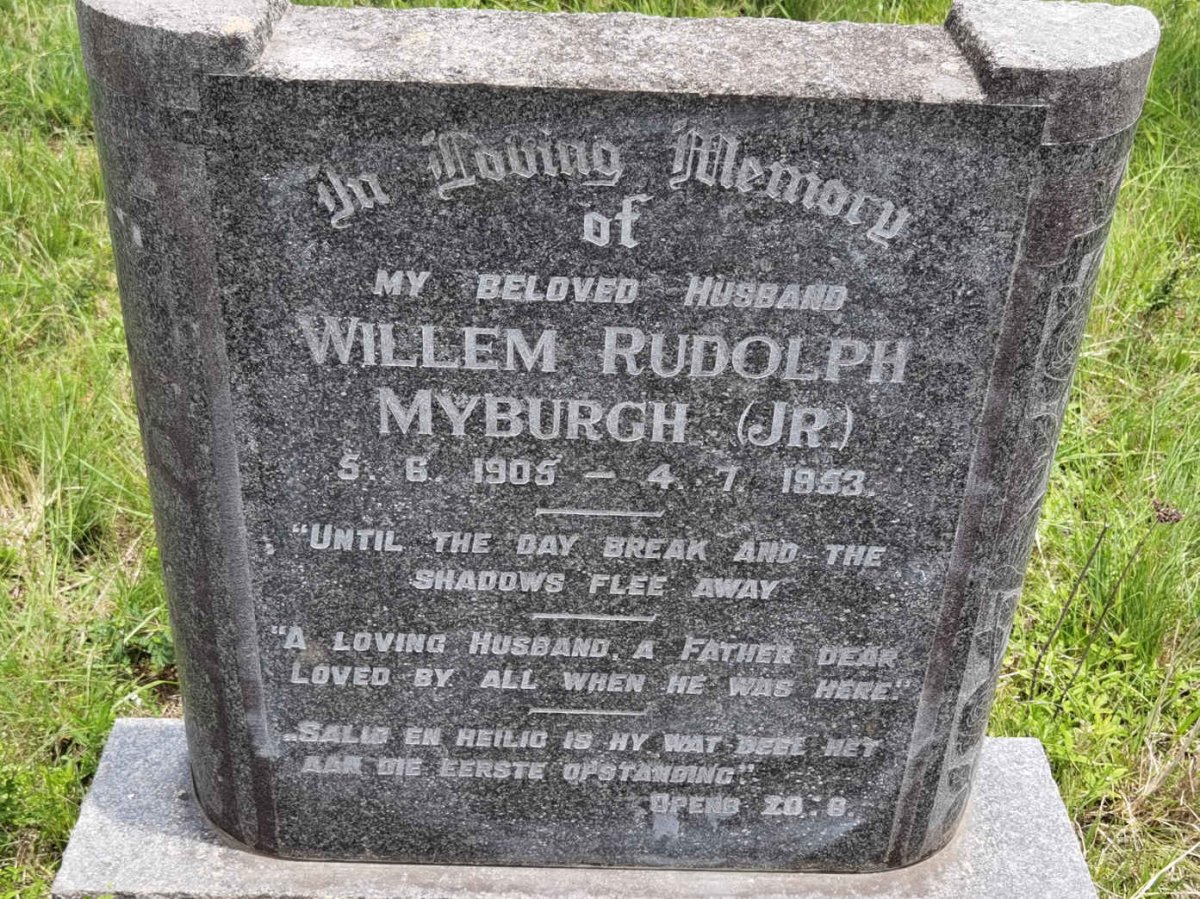 In Loving Memory
of
MY BELOVED HUSBAND
WILLEM RUDOLPH
MYBURGH (JR.)
5. 6. 1905 — 4. 7. 1953.
"UNTIL THE DAY BREAK AND THE
SHADOWS FLEE AWAY
"A LOVING HUSBAND, A FATHER DEAR
LOVED BY ALL WHEN HE WAS HERE."
„SALIG EN HEILIG IS HY WAT DEEL HET
AAN DIE EERSTE OPSTANDING"
OPENB 20.:6.